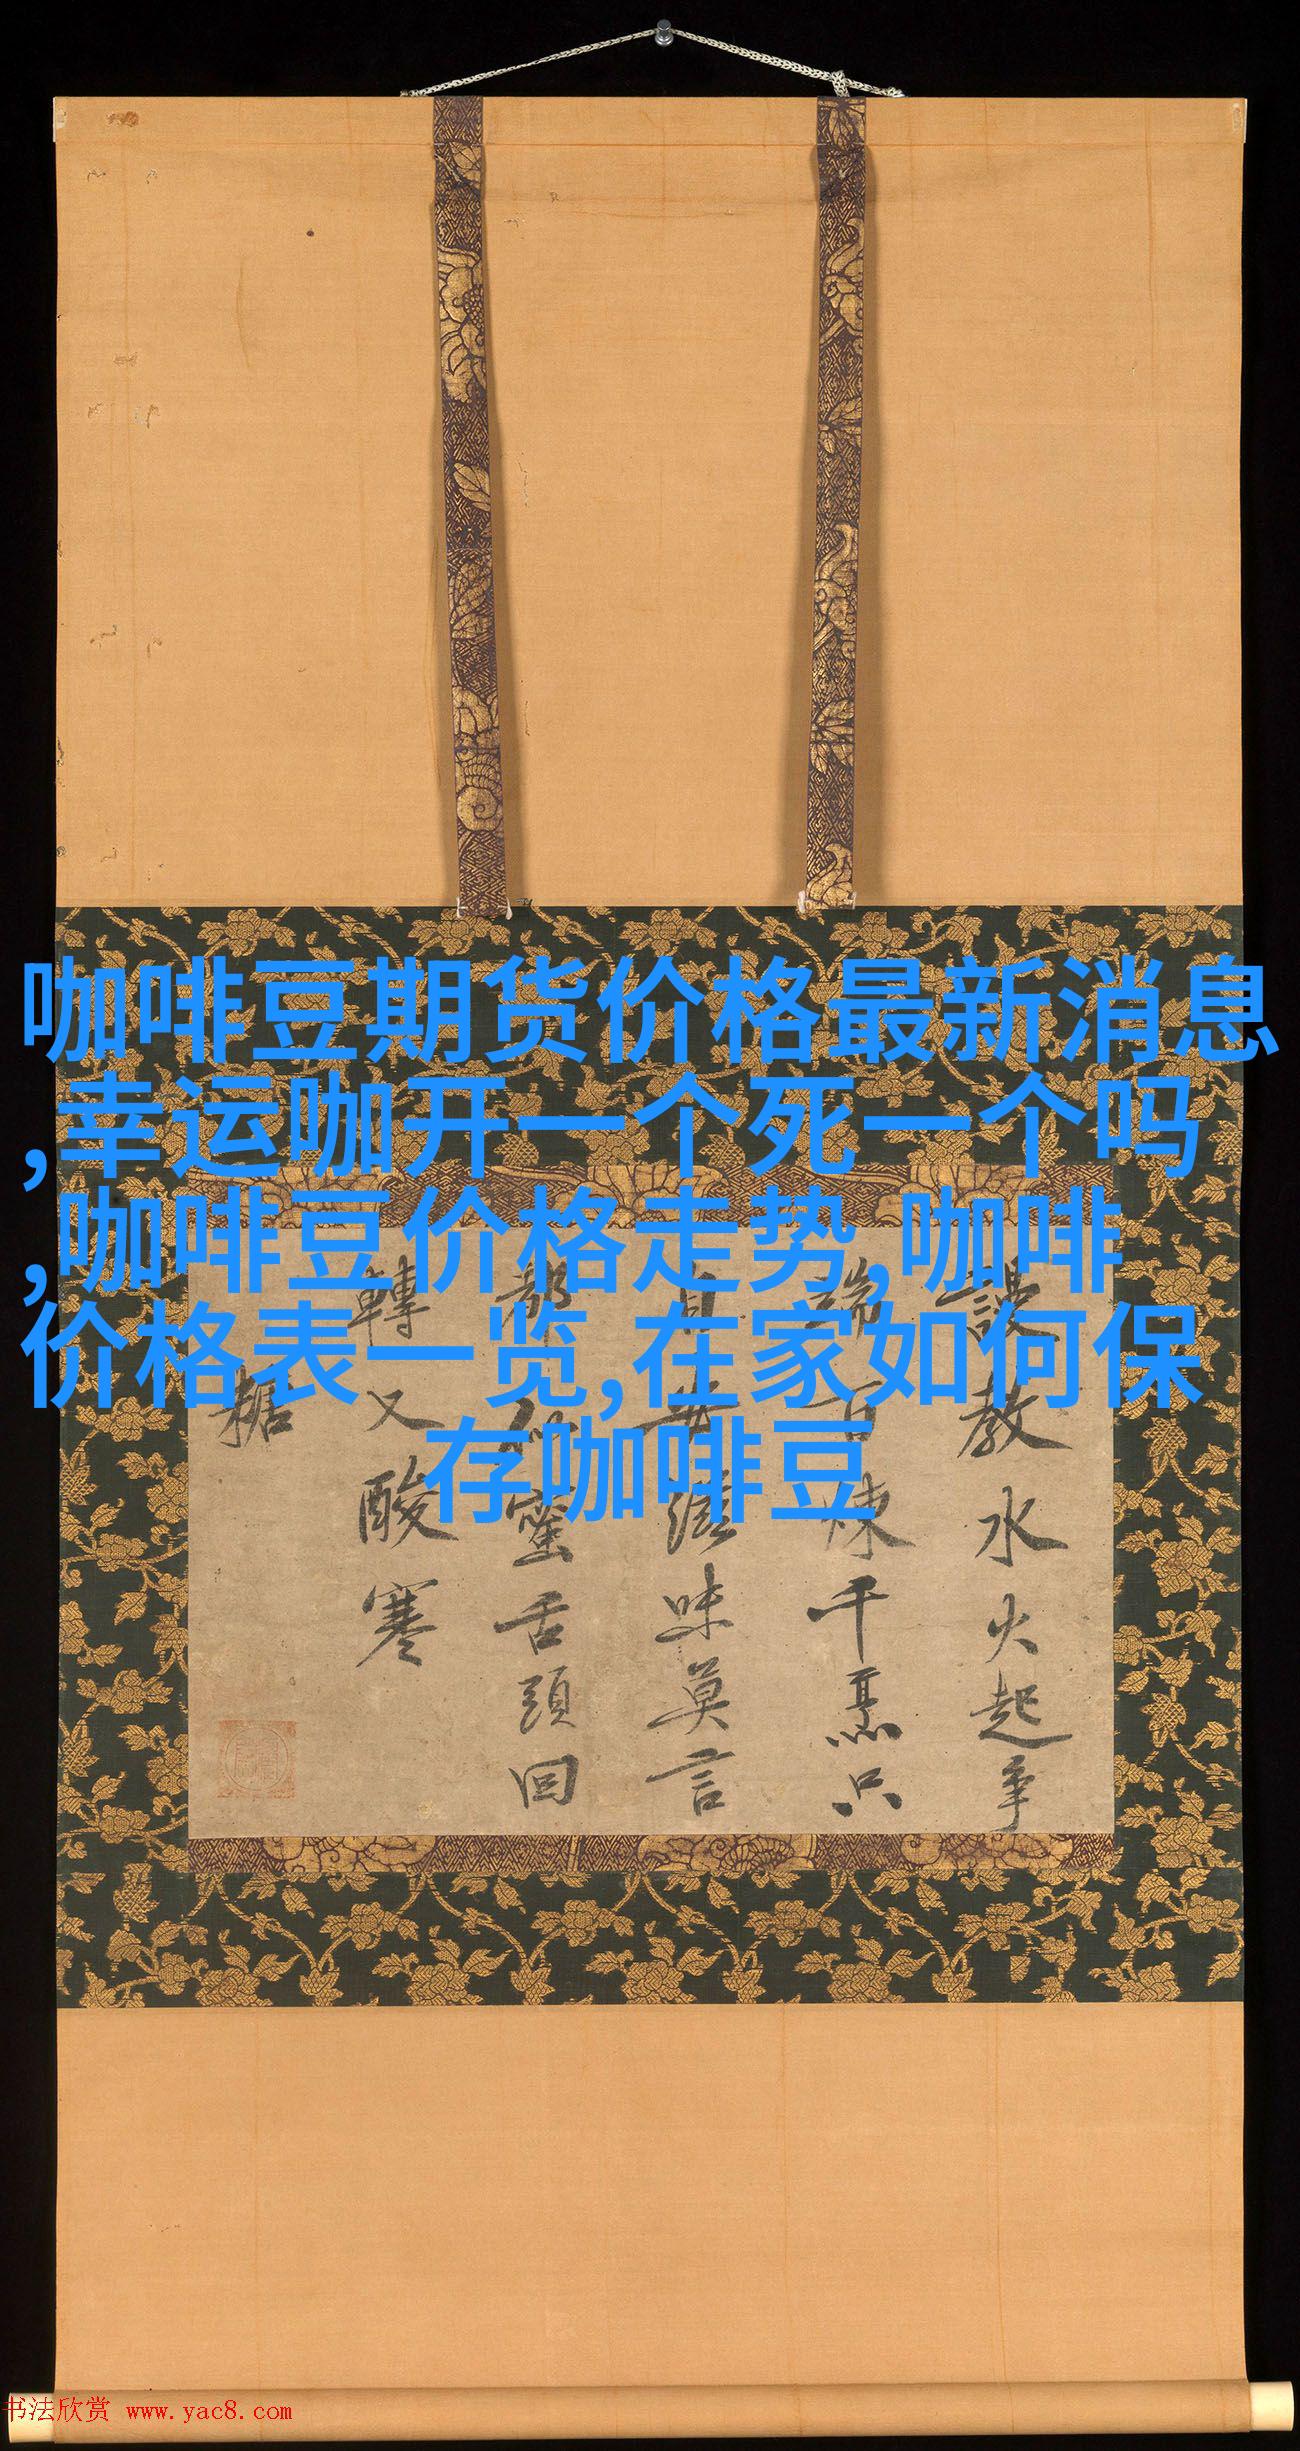 咖啡豆期货价格最新消息
,幸运咖开一个死一个吗
,咖啡豆价格走势,咖啡
价格表一览,在家如何保
存咖啡豆
教水火起争
端百煉千烹只
滋味莫言
都似蜜舌頭回
轉又酸寒
糖
书法欣赏 www.yac8.com